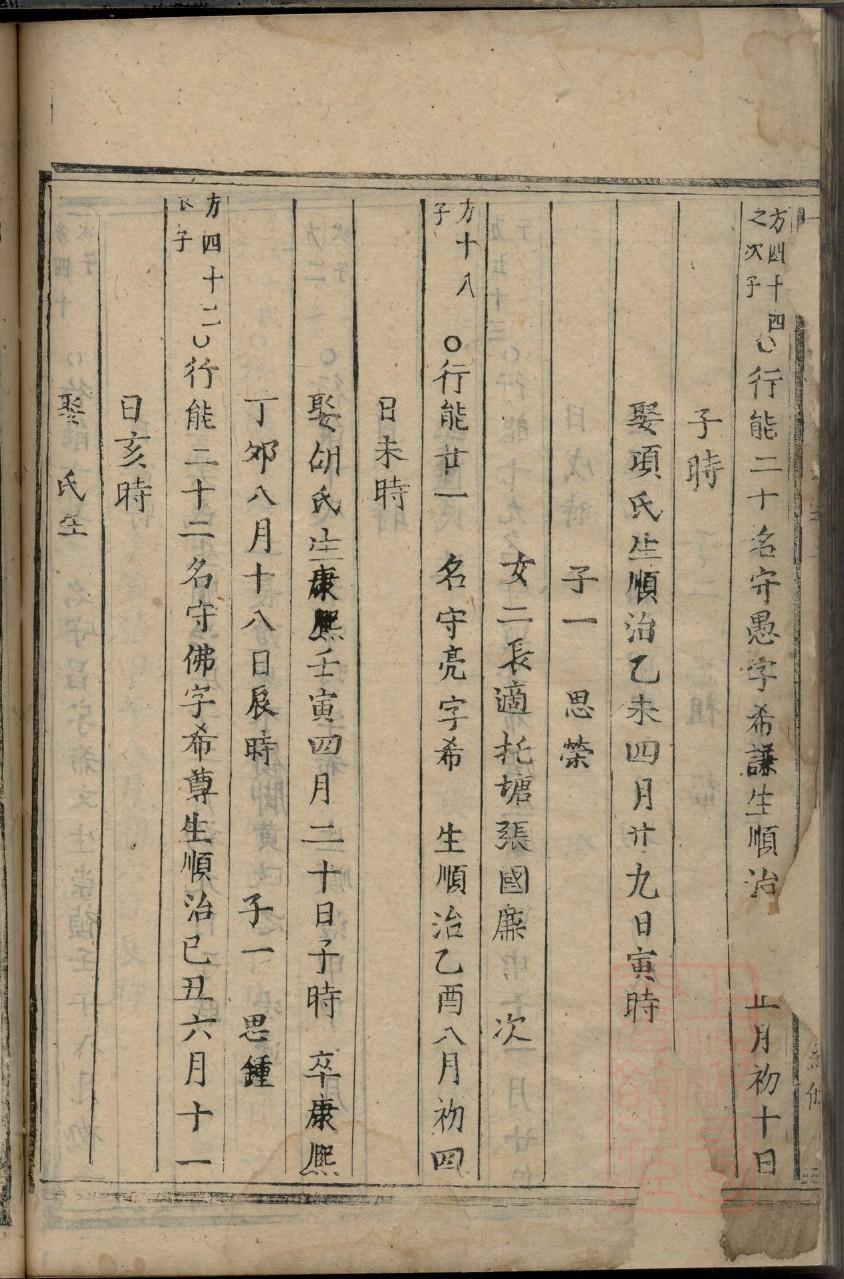 方四十四之次子○行能二十名守愚字希謙生順治 正月初十日
子時
娶項氏生順治乙未四月廿九日寅時
子一 思榮
女二長適托塘張國廉 次
方十八子 ○行能廿一 名守亮字希 生順治乙酉八月初四
日未時
娶胡氏生康熙壬寅四月二十日子時 卒康熙
丁卯八月十八日辰時 子一 思鍾
方四十二長子○行能二十二名守佛字希尊生順治己丑六月十一
日亥時
娶 氏生